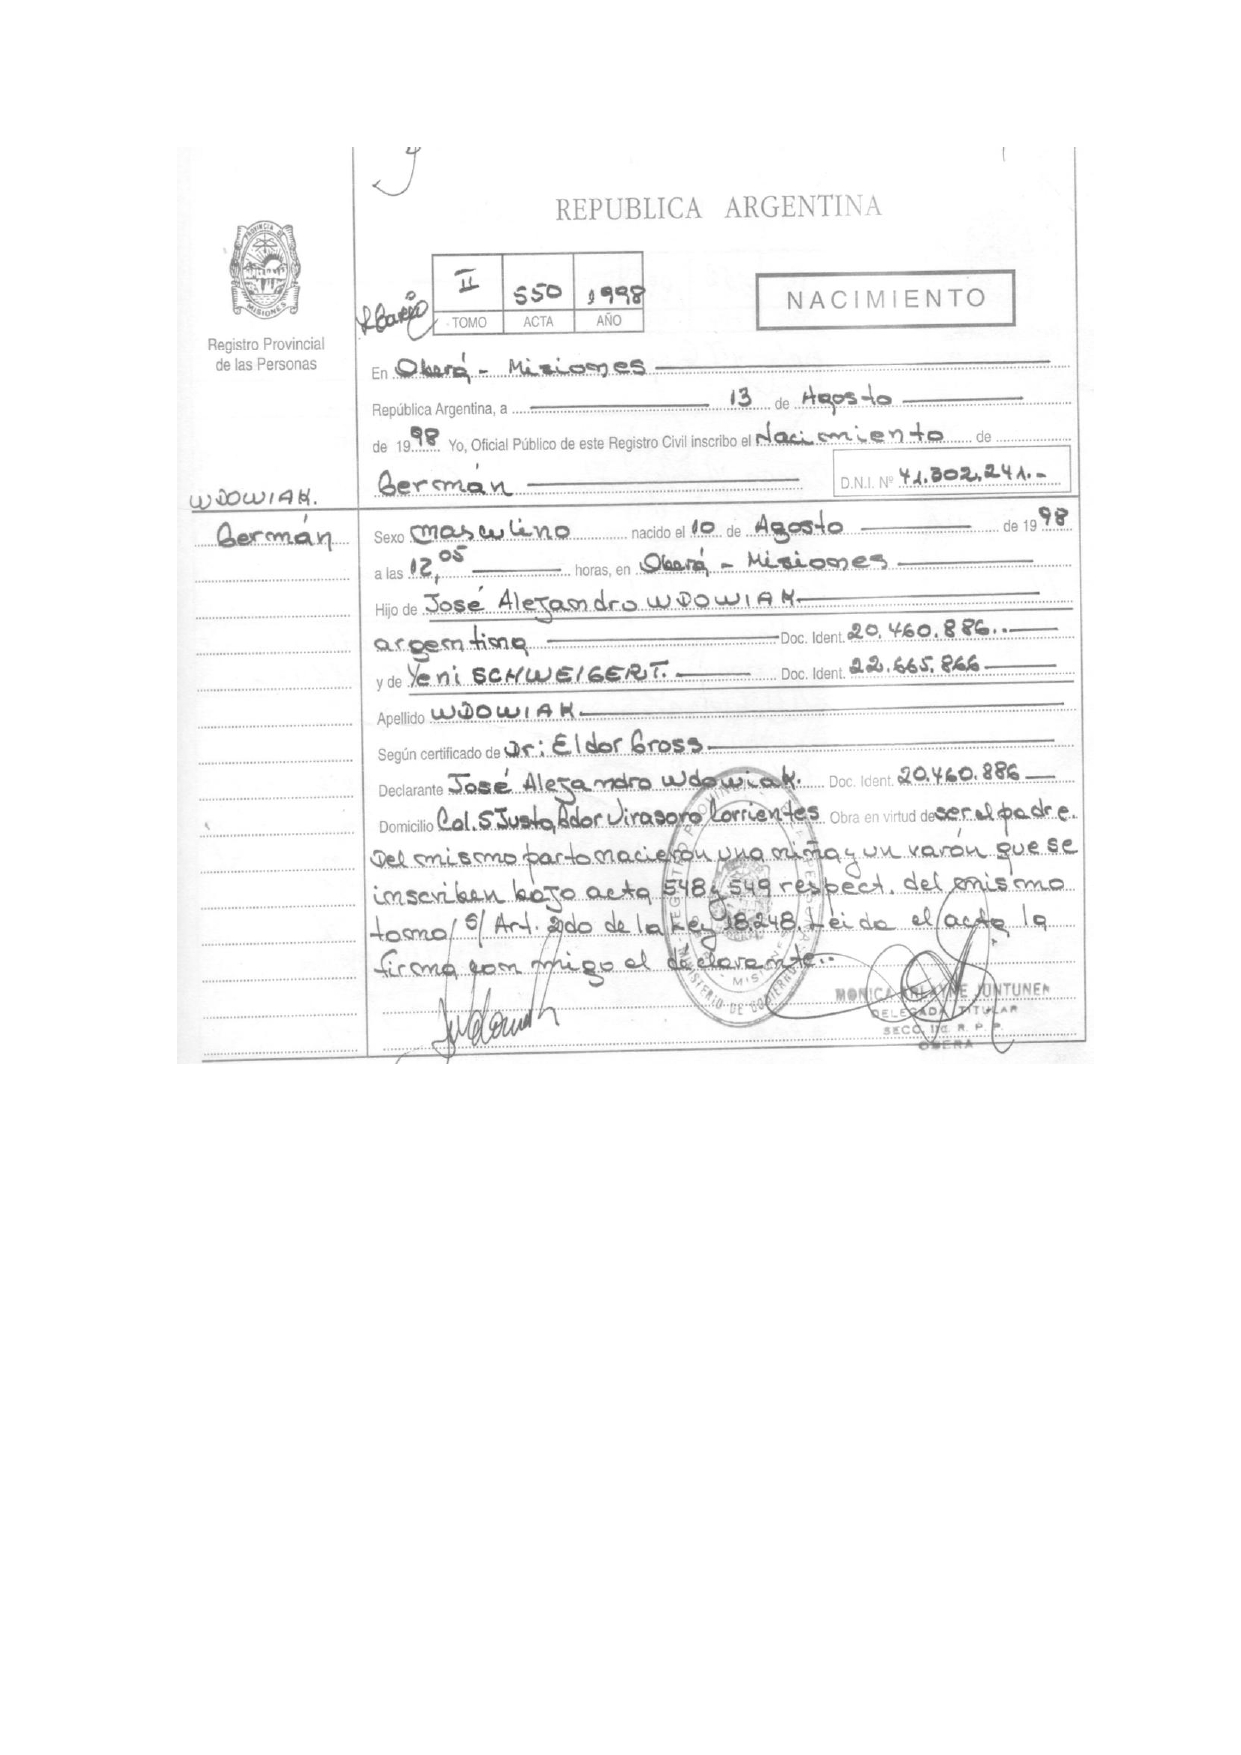 REPUBLICA ARGENTINA
II 550 1998
TOMO ACTA AÑO
NACIMIENTO
Registro Provincial
de las Personas
En Oberá - Misiones
República Argentina, a 13 de Agosto
de 1998 Yo, Oficial Público de este Registro Civil inscribo el Nacimiento de
Germán D.N.I. Nº 41.302.241.-
WDOWIAK.
Germán
Sexo masculino nacido el 10 de Agosto de 1998
a las 12,05 horas, en Oberá - Misiones
Hijo de José Alejandro WDOWIAK
argentina Doc. Ident. 20.460.886..
y de Yeni SCHWEIGERT. Doc. Ident. 22.665.866
Apellido WDOWIAK
Según certificado de Dr: Eldor Gross
Declarante José Alejandro Wdowiak. Doc. Ident. 20.460.886
Domicilio Col. S Justo, Gdor Virasoro Corrientes Obra en virtud de ser el padre.
Del mismo parto nacieron una niña y un varón que se
inscriben bajo acta 548 y 549 respect. del mismo
tomo/ S/ Art. 2do de la Ley 18.248. Leida el acta la
firma con migo el declarante..
MONICA JUNTUNEN
DELEGADA TITULAR
SECC. R. P. P.
OBERA